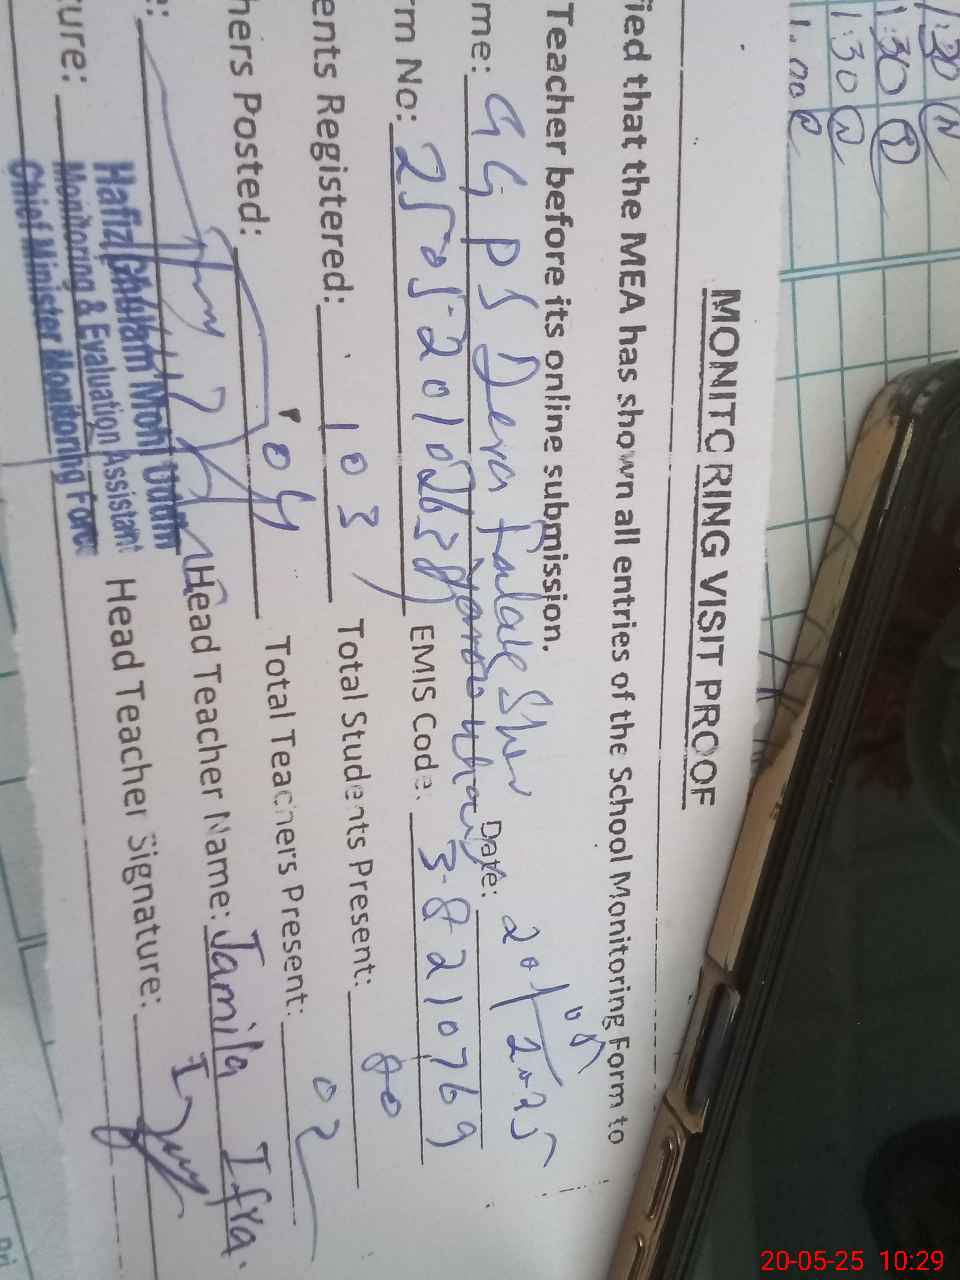 1:30
1:30
1:30
1.00
MONITORING VISIT PROOF
ied that the MEA has shown all entries of the School Monitoring Form to
Teacher before its online submission.
me: GGPS Dera Date: 20/05/2025
rm No: 25052010 EMIS Code: 38210769
ents Registered: 103 Total Students Present: 80
hers Posted: 04 Total Teachers Present: 02
e: Head Teacher Name: Jamila Ifra.
ture: Head Teacher Signature:
Hafiz Ghulam Mohi Uddin
Monitoring & Evaluation Assistant
Chief Minister Monitoring Force
20-05-25 10:29